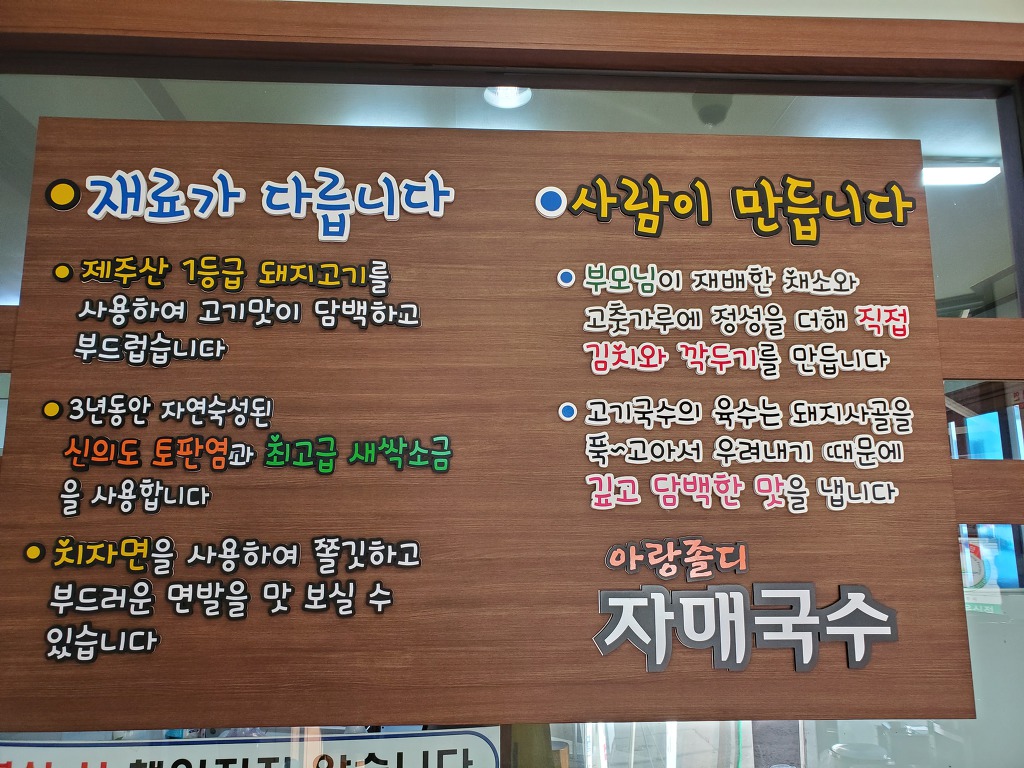 재료가 다릅니다
제주산 1등급 돼지고기를
사용하여 고기맛이 담백하고
부드럽습니다
3년동안 자연숙성된
신의도 토판염과 최고급 새싹소금
을 사용합니다
치자면을 사용하여 쫄깃하고
부드러운 면발을 맛 보실 수
있습니다
사람이 만듭니다
부모님이 재배한 채소와
고춧가루에 정성을 더해 직접
김치와 깍두기를 만듭니다
고기국수의 육수는 돼지사골을
푹~고아서 우려내기 때문에
깊고 담백한 맛을 냅니다
아랑졸디
자매국수
책임지지 않습니다